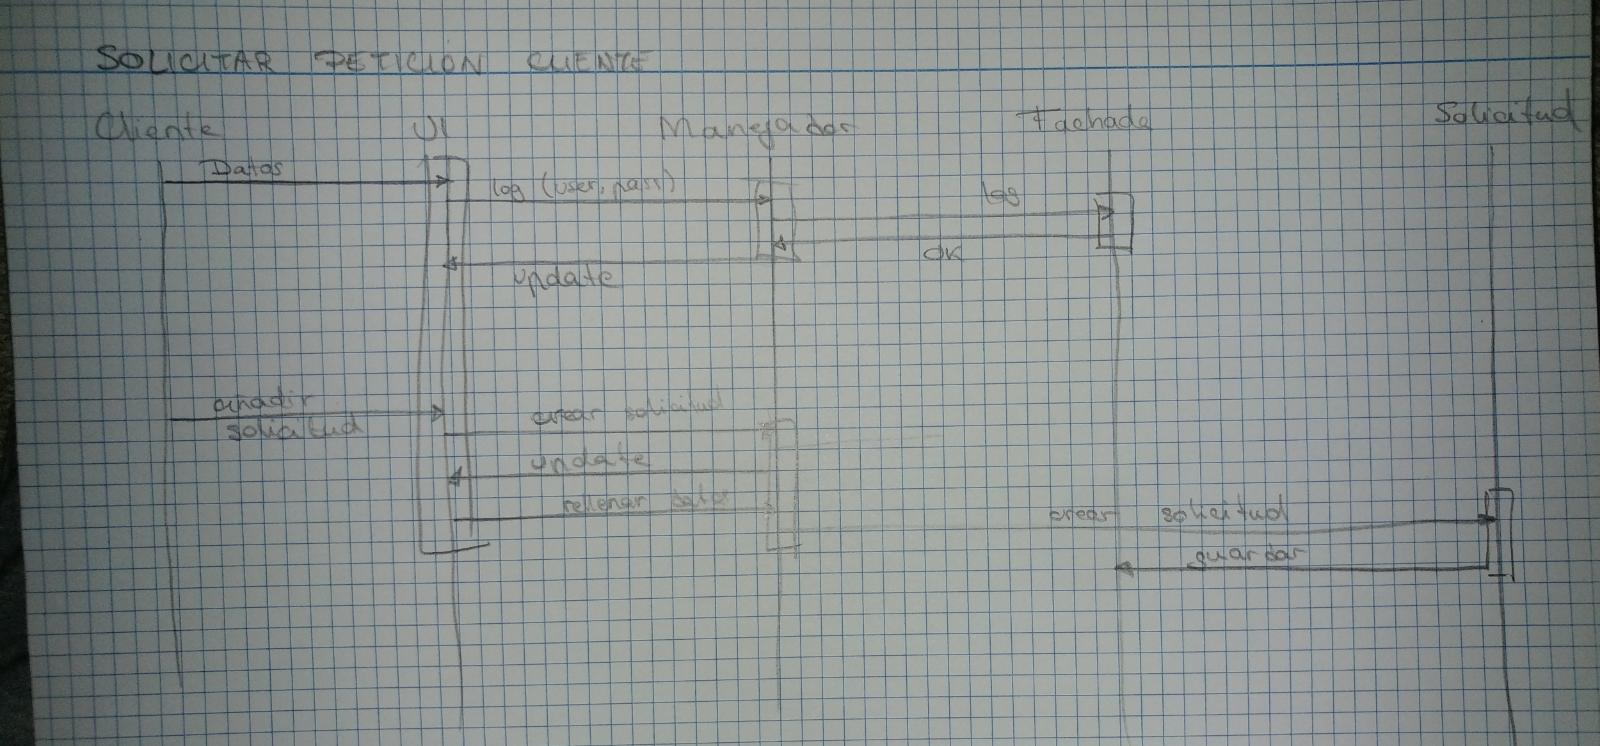 SOLICITAR PETICIÓN CLIENTE
Cliente UI Manejador Fachada Solicitud
Datos
log (user, pass)
log
OK
update
añadir
solicitud
crear solicitud
update
rellenar datos
crear solicitud
guardar